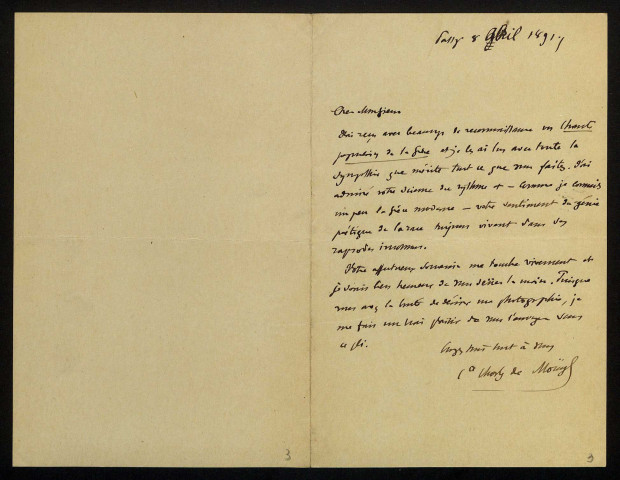 Passy 8 Avril 1891
Cher Monsieur
J'ai reçu avec beaucoup de reconnaissance vos Chants
populaires de la Grèce et je les ai lus avec toute la
sympathie que mérite tout ce que vous faites. J'ai
admiré votre science du rythme et — comme je connais
un peu la Grèce moderne — votre sentiment du génie
poétique de la race toujours vivant dans ses
rapsodes inconnus.
Votre affectueux souvenir me touche vivement et
je serais bien heureux de vous serrer la main. Puisque
vous avez la bonté de désirer ma photographie, je
me fais un vrai plaisir de vous l'envoyer sous
ce pli.
tout à vous
Cte Charles de Moüy
3
3